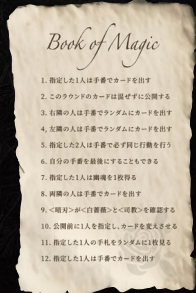 Book of Magic
1. 指定した1人は手番でカードを出す
2. このラウンドのカードは混ぜずに公開する
3. 右隣の人は手番でランダムにカードを出す
4. 左隣の人は手番でランダムにカードを出す
5. 指定した2人は手番で必ず同じ行動を行う
6. 自分の手番を最後にすることもできる
7. 指定した1人は幽魂を1枚得る
8. 両隣の人は手番でカードを出す
9. <暗刃>が<白薔薇>と<司教>を確認する
10. 公開前に1人を指定し、カードを変えさせる
11. 指定した1人の手札をランダムに1枚見る
12. 指定した1人は手番でカードを出す